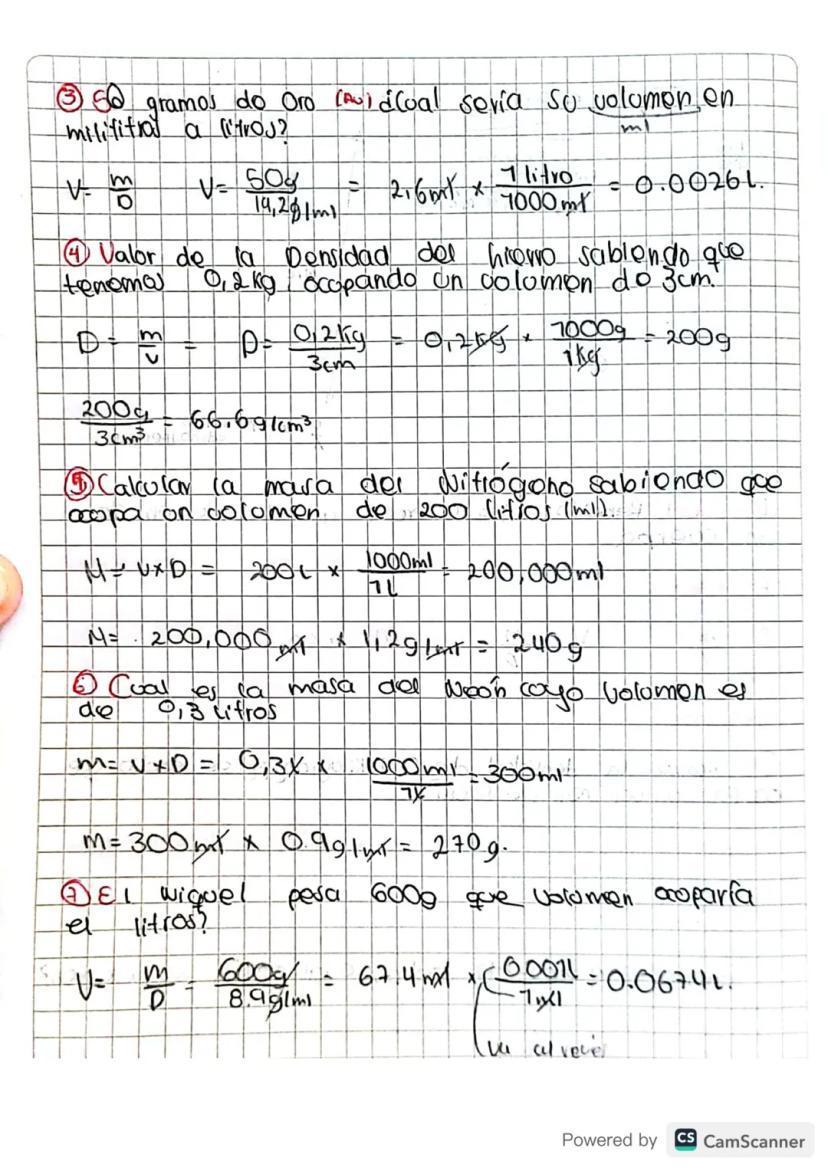 ③ 50 gramos do Oro (Au) ¿Cual seria su volumen en
mililitros a litros? ml
V= m/D V= 50g/19,2g/ml = 2,6ml x 1 litro/1000ml = 0.0026L.
④ Valor de la Densidad del hierro sabiendo que
tenemos 0,2kg ocopando un volumen do 3cm.
D= m/v = D= 0,2kg/3cm = 0,2kg x 1000g/1kg = 200g
200g/3cm³ = 66.6g/cm³
⑤ Calcular la masa del Nitrógeno sabiendo que
ocopa un volumen de 200 litros (ml).
M= VxD = 200L x 1000ml/1L = 200,000ml
M= 200,000ml x 1,2g/ml = 240g
⑥ Cual es la masa del Neón cuyo volumen es
de 0,3 Litros
m= VxD = 0,3L x 1000ml/1L = 300ml
m= 300ml x 0.9g/ml = 270g.
⑦ El niquel pesa 600g que volumen ocoparía
el litros?
V= m/D = 600g/8.9g/ml = 67.4ml x (0.001L/1ml = 0.0674L.
va al reves
Powered by CS CamScanner